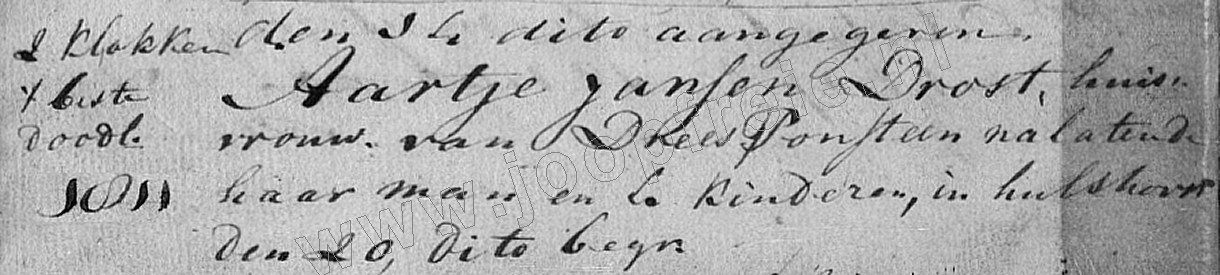 2 klokken
x beste
doodl.
1811
den 14 dito aangegeven.
Aartje Jansen Drost, huis-
vrouw. van Drees Ponsteen nalatende
haar man en 4 kinderen, in hulshorst
den 20, dito begr
www.joopfreie.nl